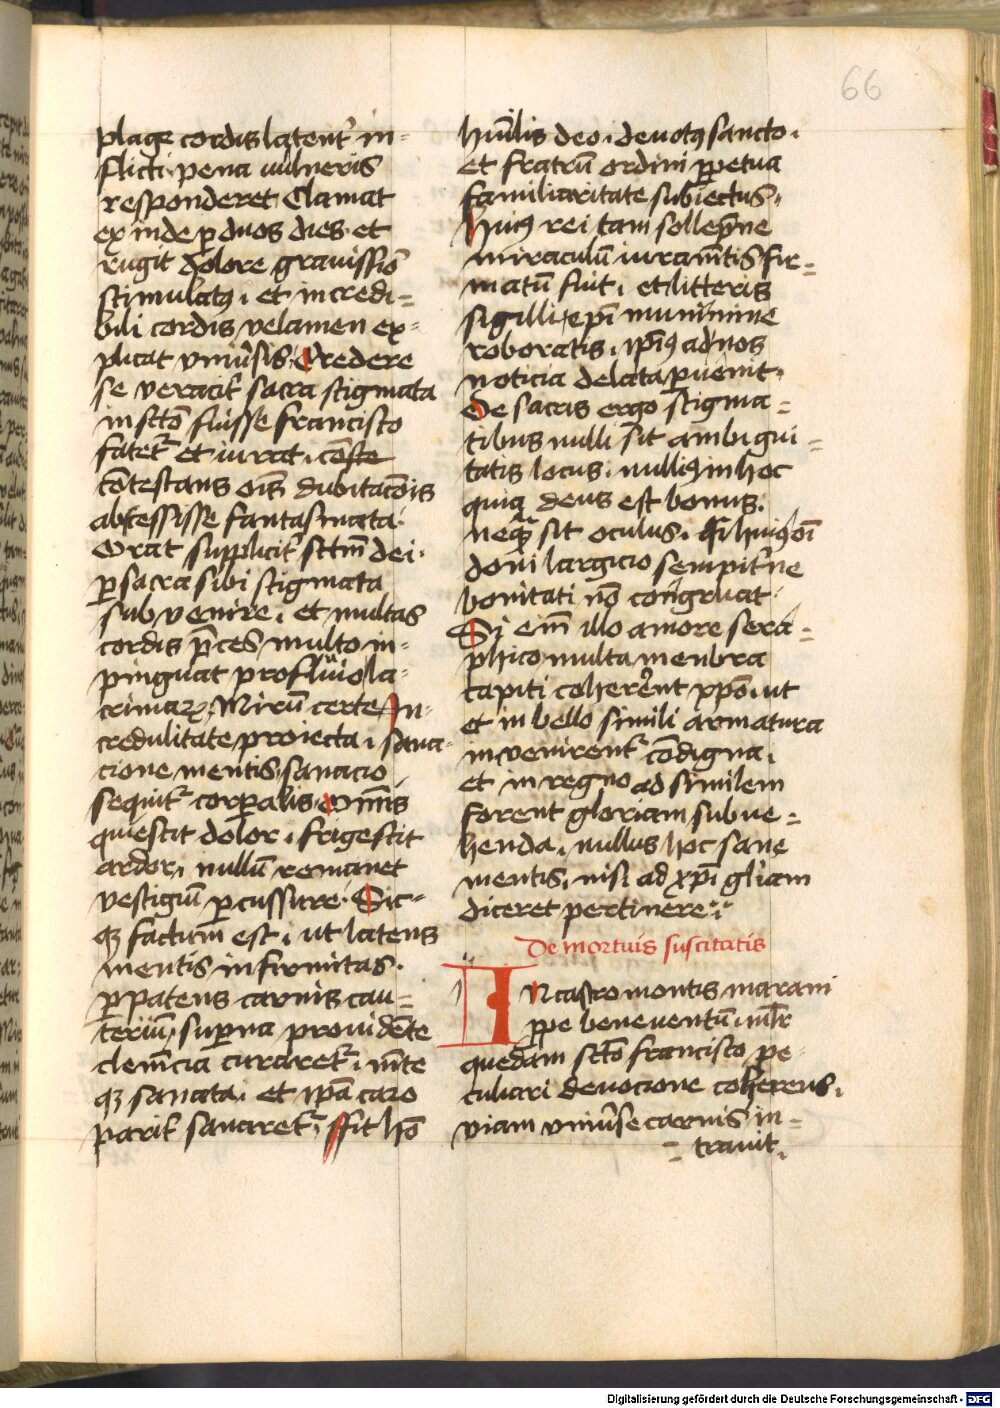 66
plage cordis latent᷑ in-
flicti pena vulneris
responderet Clamat
ex inde p duos dies et
rugit dolore grauissio᷑
stimulatꝰ, et incredi=
bili cordis velamen ex-
plicat vniu᷑sis. Credere
se veracit᷑ sacra stigmata
in sc̄to fuisse francisco
fatet᷑ et iurat,
cōtestans om̄s dubitacōis
abcessisse fantasmata.
Orat supplicit᷑ sctm̄ dei.
ꝑ sacra sibi stigmata
subvenire, et multas
cordis p̄ces multo in-
pinguat profluuio la-
crimaꝝ. Mirū certe In-
credulitate proiecta, sana-
cione mentis, sanacio
sequit᷑ corꝑalis. Om̄is
quiescit dolor, frigescit
ardor, nullū remanet
vestigiū ꝑcussure. Sic-
qꝫ factum est, ut latens
mentis infirmitas.
ꝑ patens carnis cau=
teriū, suꝑna prouidēte
clemēcia curaret᷑. mēte
qꝫ sanata, et ip̄a caro
parit᷑ sanaret᷑. ffit hō
hūilis deo, deuotꝰ sancto,
et fratrū ordini ꝑpetua
familiaritate subiectus.
Huiꝰ rei tam sollēpne
miraculū iuramētis fir=
matū fuit, et litteris
sigilli ep̄i munimine
roboratis, ipsiꝰ ad nos
noticia delata ꝑuenit.
De sacris ergo stigma=
tibus nulli sit ambigui=
tatis locus. nulliꝰ in hoc
quia deus est bonus.
neqᷓ sit oculus. qͣsi huiꝰmōi
doni largicio sempit᷑ne
bonitati nō congruat.
Si em̄ illo amore sera=
phico multa menbra
capiti coherērent xp̄o. ut
et in bello simili armatura
invenirent᷑ cōdigna,
et in regno ad similem
forent gloriam subue=
henda, nullus hoc sane
mentis, nisi ad xp̄i gl̄iam
diceret pertinere
De mortuis suscitatis
In castro montis marani
ꝓpe beneventū, mul̄r
quedam sctō francisco pe-
culiari deuocione coherens,
viam vniu᷑se carnis in=
=trauit.
Digitalisierung gefördert durch die Deutsche Forschungsgemeinschaft - DFG